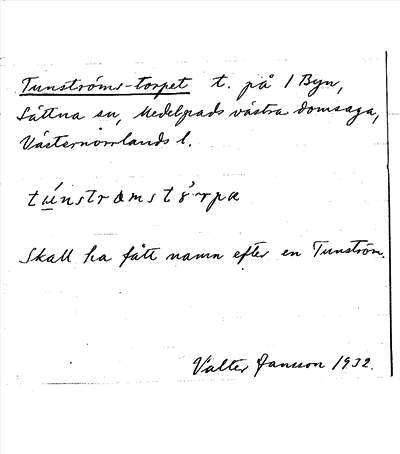 Tunströms-torpet t. på 1 Byn,
Sättna sn, Medelpads västra domsaga,
Västernorrlands l.
tú̲nstrɑmstɔ̀rpɑ
Skall ha fått namn efter en Tunström.
Valter Jansson 1932.